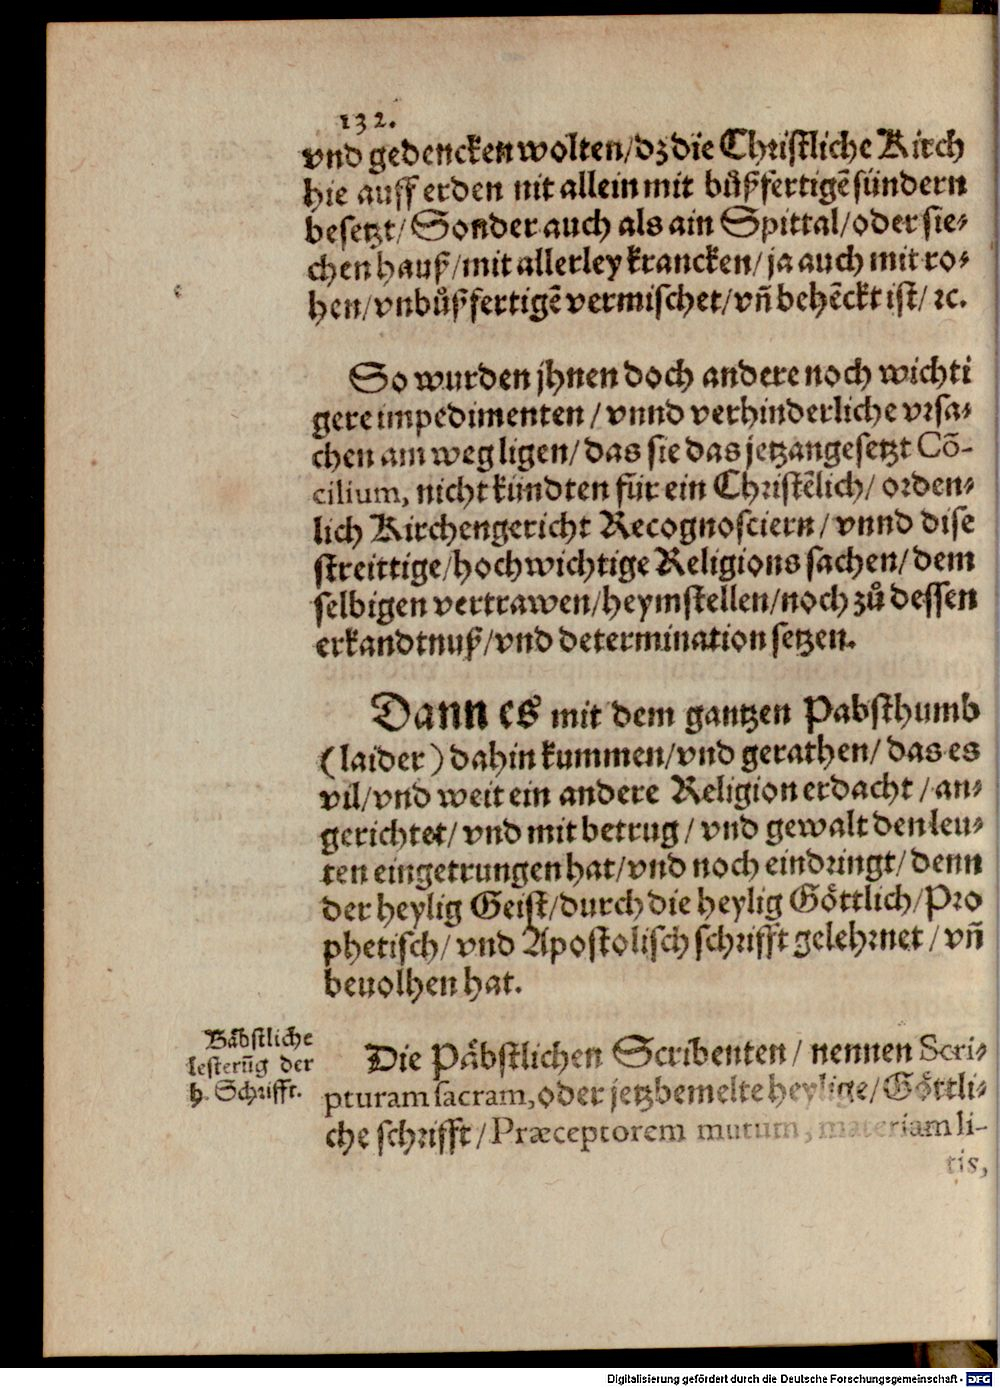 132.
vnd gedencken wolten/dz die Christliche Kirch
hie auff erden nit allein mit bůßfertigẽ sündern
besetzt/ Sonder auch als ain Spittal/oder sie⸗
chen hauß/mit allerley krancken/ja auch mit ro⸗
hen/vnbůßfertigẽ vermischet/vñ behẽckt ist/ ꝛc.
So wurden jhnen doch andere noch wichti
gere impedimenten / vnnd verhinderliche vrsa⸗
chen am weg ligen/ das sie das jetzangesetzt Cõ-
cilium, nicht kündten für ein Christẽlich/ orden⸗
lich Kirchengericht Recognosciern/ vnnd dise
streittige/hochwichtige Religions sachen/ dem
selbigen vertrawen/heymstellen/noch zů dessen
erkandtnuß/vnd determination setzen.
Dann es mit dem gantzen Pabsthumb
(laider) dahin kummen/vnd gerathen/ das es
vil/vnd weit ein andere Religion erdacht / an⸗
gerichtet/ vnd mit betrug/ vnd gewalt den leu⸗
ten eingetrungen hat/vnd noch eindringt/ denn
der heylig Geist/durch die heylig Göttlich/Pro
phetisch/ vnd Apostolisch schrifft gelehrnet / vñ
beuolhen hat.
Bäbstliche
lesterũg der
h. Schrifft.
Die Päbstlichen Scribenten/ nennen Scri⸗
pturam sacram, oder jetzbemelte heylige/ Göttli⸗
che schrifft/ Præceptorem mutum, materiam li-
tis,
Digitalisierung gefördert durch die Deutsche Forschungsgemeinschaft - DFG